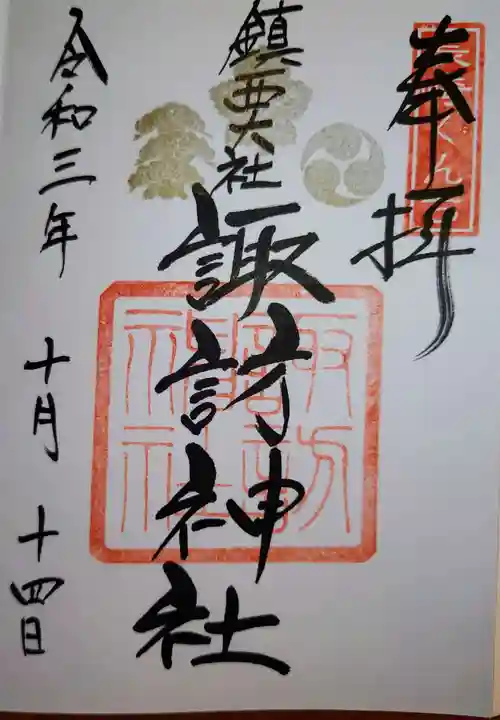 奉拝
鎮西大社
諏訪神社
令和三年 十月 十四日
諏訪神社